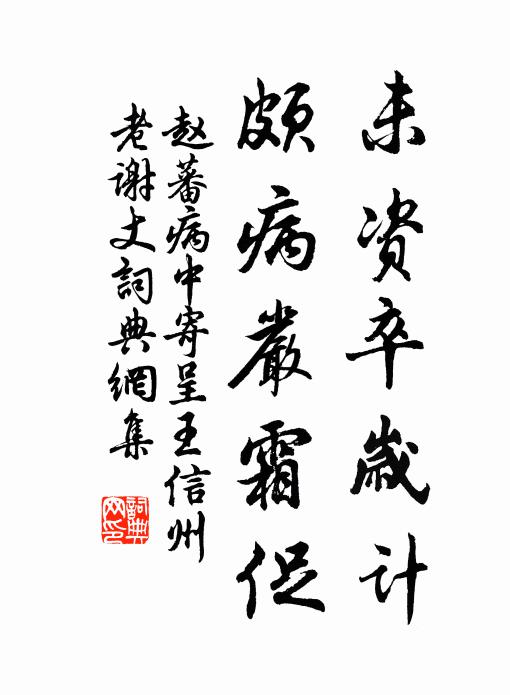 未资卒歲计
頗病嚴霜促
赵蕃病中寄呈王信州
老谢丈詞典網集
詞典网印